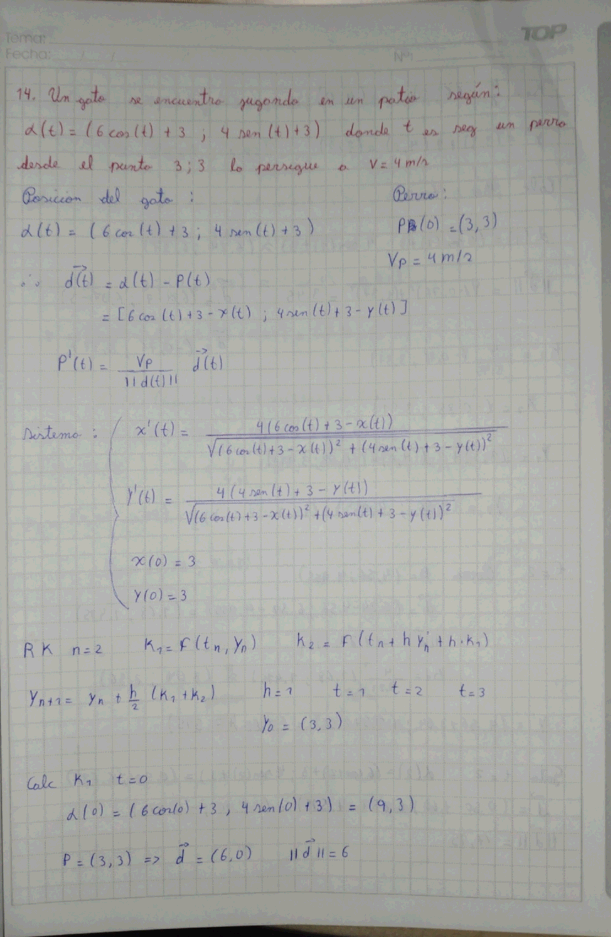 Tema:
TOP
Fecha:
Nº:
14. Un gato se encuentra jugando en un patio según:
α(t) = (6 cos(t) + 3 ; 4 sen(t)+3) donde t es seg un perro
desde el punto 3;3 lo persigue a V = 4 m/s
Posición del gato :
Perro:
α(t) = (6 cos(t) + 3 ; 4 sen(t)+3)
P(0) = (3,3)
Vp = 4 m/s
∴ d(t) = α(t) - P(t)
= [6 cos(t)+3-x(t) ; 4 sen(t)+3-y(t)]
P'(t) = Vp / ||d(t)|| d(t)
Sistema : x'(t) = 4(6 cos(t)+3-x(t)) / √(6 cos(t)+3-x(t))² + (4 sen(t)+3-y(t))²
y'(t) = 4(4 sen(t)+3-y(t)) / √(6 cos(t)+3-x(t))² + (4 sen(t)+3-y(t))²
x(0) = 3
y(0) = 3
RK n=2 K₁ = F(tn, Yn) K₂ = F(tn + h Yn + h·K₁)
Yn+1 = Yn + h/2 (K₁ + K₂) h=1 t=1 t=2 t=3
Y₀ = (3,3)
Calc K₁ t=0
α(0) = (6 cos(0) + 3 , 4 sen(0) + 3) = (9,3)
P = (3,3) => d = (6,0) ||d|| = 6